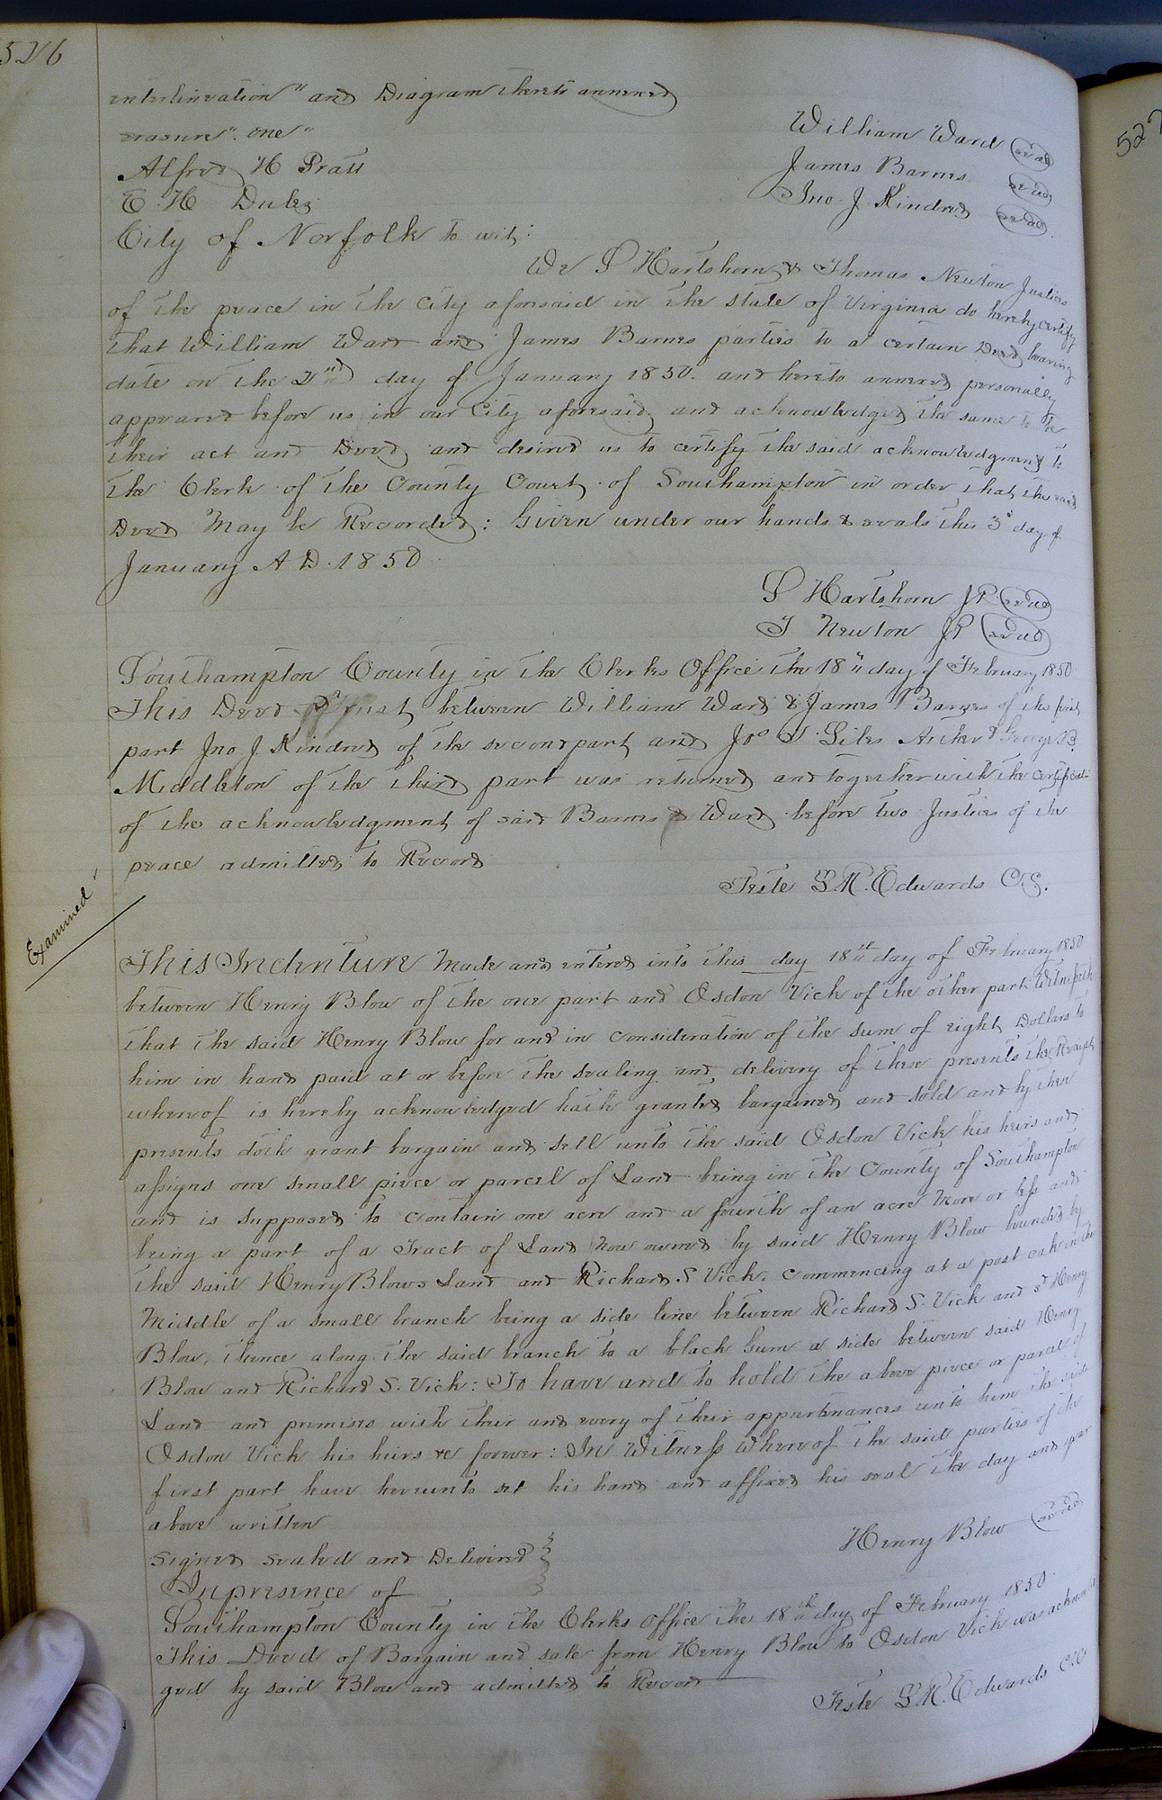 526
interlineation" and Diagram thereto annexed
erasure "one"
William Ward (seal)
Alfred H Pratt
James Barnes (seal)
E. H Dukes
Jno. J. Kindred (seal)
City of Norfolk to wit:
We S Hartshorn & Thomas Newton Justices
of the peace in the City aforesaid in the state of Virginia do hereby certify
that William Ward and James Barnes parties to a certain Deed bearing
date on the 2nd day of January 1850. and hereto annexed personally
appeared before us in our City aforesaid and acknowledged the same to be
their act and Deed and desired us to certify the said acknowledgment to
the Clerk of the County Court of Southampton in order that the said
Deed May be Recorded: Given under our hands & seals this 3d day of
January A D. 1850
S Hartshorn JP (seal)
T Newton JP (seal)
Southampton County in the Clerks Office the 18th day of February 1850
This Deed Trust between William Ward & James Barnes of the first
part Jno. J. Kindred of the second part and Jos Giles George B.
Middleton of the third part was returned and together with the certificate
of the acknowledgment of said Barnes & Ward before two Justices of the
peace admitted to Record
Teste L. R. Edwards C.S.
Examined
This Indenture Made and entered into this day 18th day of February 1850
between Henry Blow of the one part and Osdon Vick of the other part Witnesseth
that the said Henry Blow for and in consideration of the sum of eight Dollars to
him in hand paid at or before the sealing and delivery of these presents the Receipt
whereof is hereby acknowledged hath granted bargained and sold and by these
presents doth grant bargain and sell unto the said Osdon Vick his heirs and
assigns one small piece or parcel of Land being in the County of Southampton
and is supposed to contain one acre and a fourth of an acre More or less and
being a part of a Tract of Land Now owned by said Henry Blow bounded by
the said Henry Blows Land and Richard S Vick. commencing at a post oak in the
Middle of a small branch being a side line between Richard S. Vick and sd Henry
Blow, thence along the said branch to a black Gum a side between said Henry
Blow and Richard S. Vick: To have and to hold the above piece or parcel of
Land and premises with their and every of their appurtenances unto him the said
Osdon Vick his heirs &c forever: In Witness Whereof the said parties of the
first part have hereunto set his hand and affixed his seal the day and year
above written
Henry Blow (seal)
Signed Sealed and Delivered
In presence of
Southampton County in the Clerks Office the 18th day of February 1850.
This Deed of Bargain and sale from Henry Blow to Osdon Vick was acknowled
ged by said Blow and admitted to Record
Teste L. R. Edwards
527